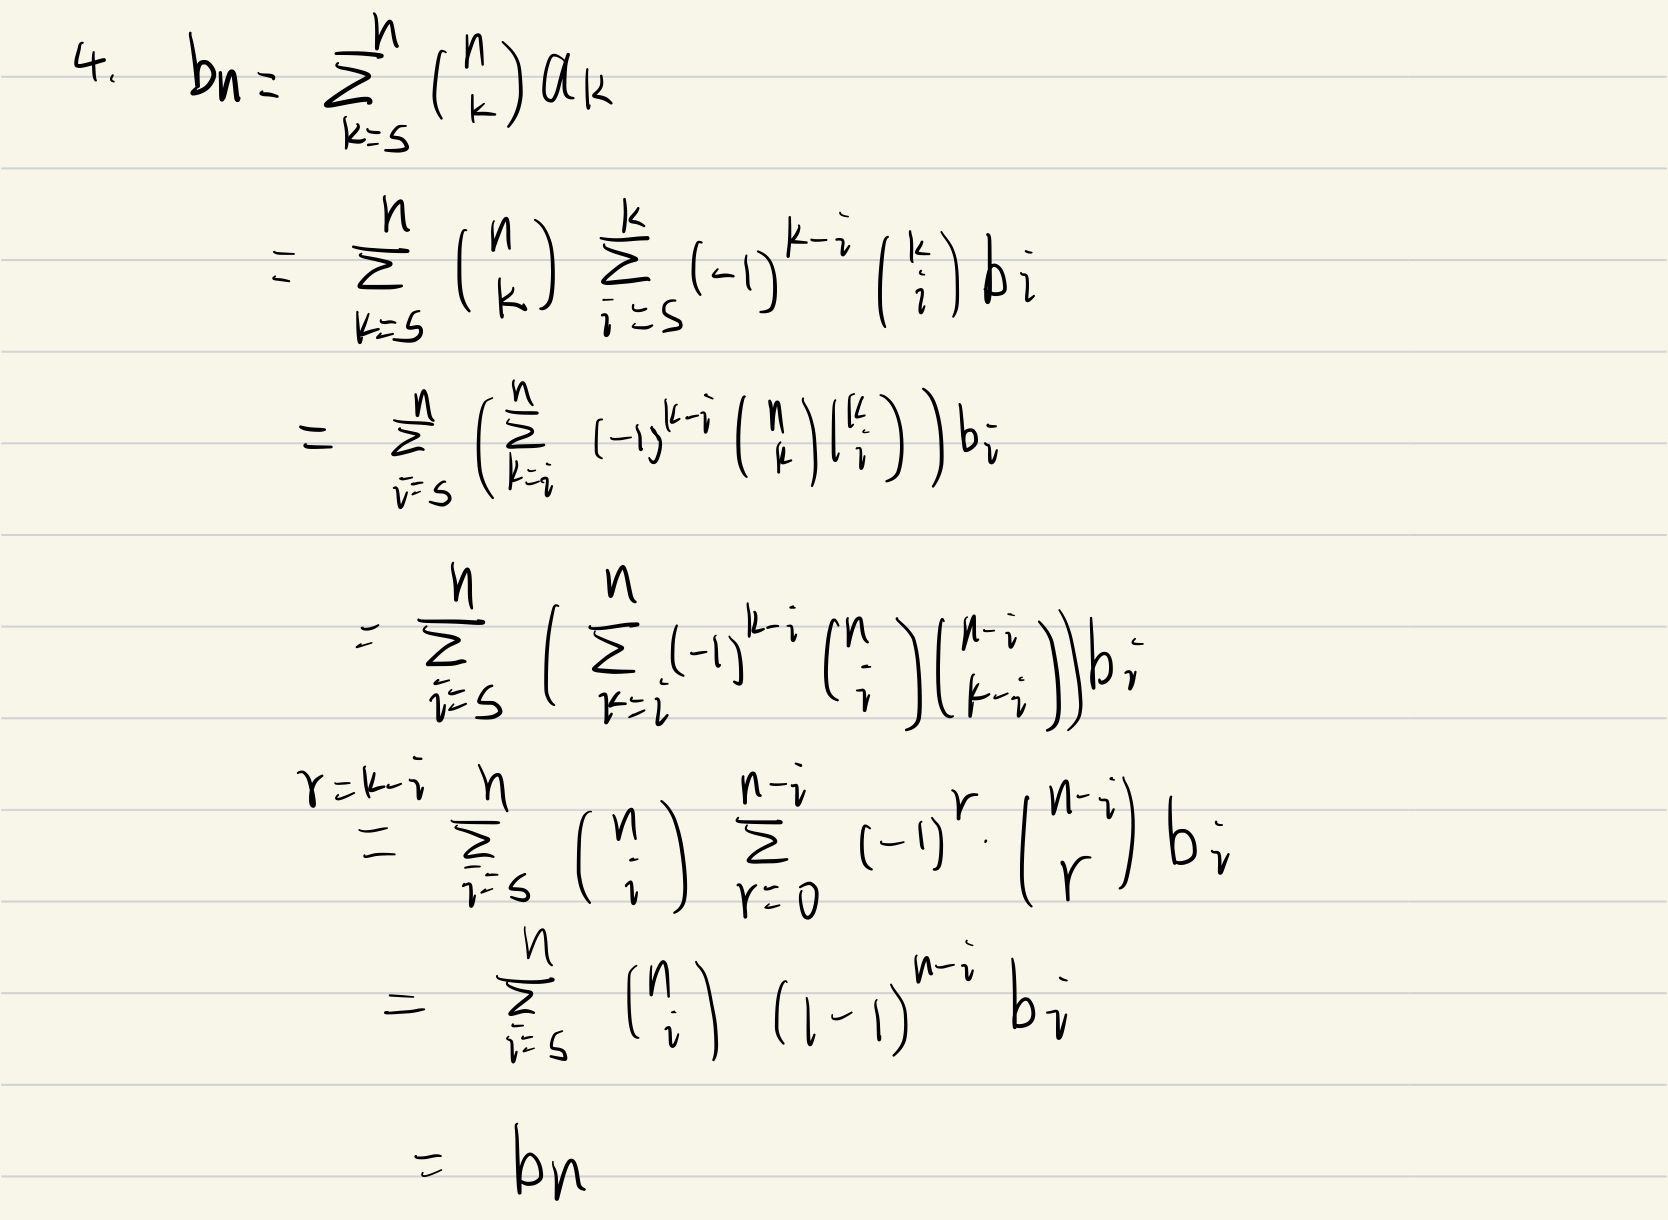 4. $b_n = \sum_{k=s}^{n} \binom{n}{k} a_k$
$= \sum_{k=s}^{n} \binom{n}{k} \sum_{i=s}^{k} (-1)^{k-i} \binom{k}{i} b_i$
$= \sum_{i=s}^{n} \left( \sum_{k=i}^{n} (-1)^{k-i} \binom{n}{k} \binom{k}{i} \right) b_i$
$= \sum_{i=s}^{n} \left( \sum_{k=i}^{n} (-1)^{k-i} \binom{n}{i} \binom{n-i}{k-i} \right) b_i$
$\overset{r=k-i}{=} \sum_{i=s}^{n} \binom{n}{i} \sum_{r=0}^{n-i} (-1)^r \cdot \binom{n-i}{r} b_i$
$= \sum_{i=s}^{n} \binom{n}{i} (1-1)^{n-i} b_i$
$= b_n$